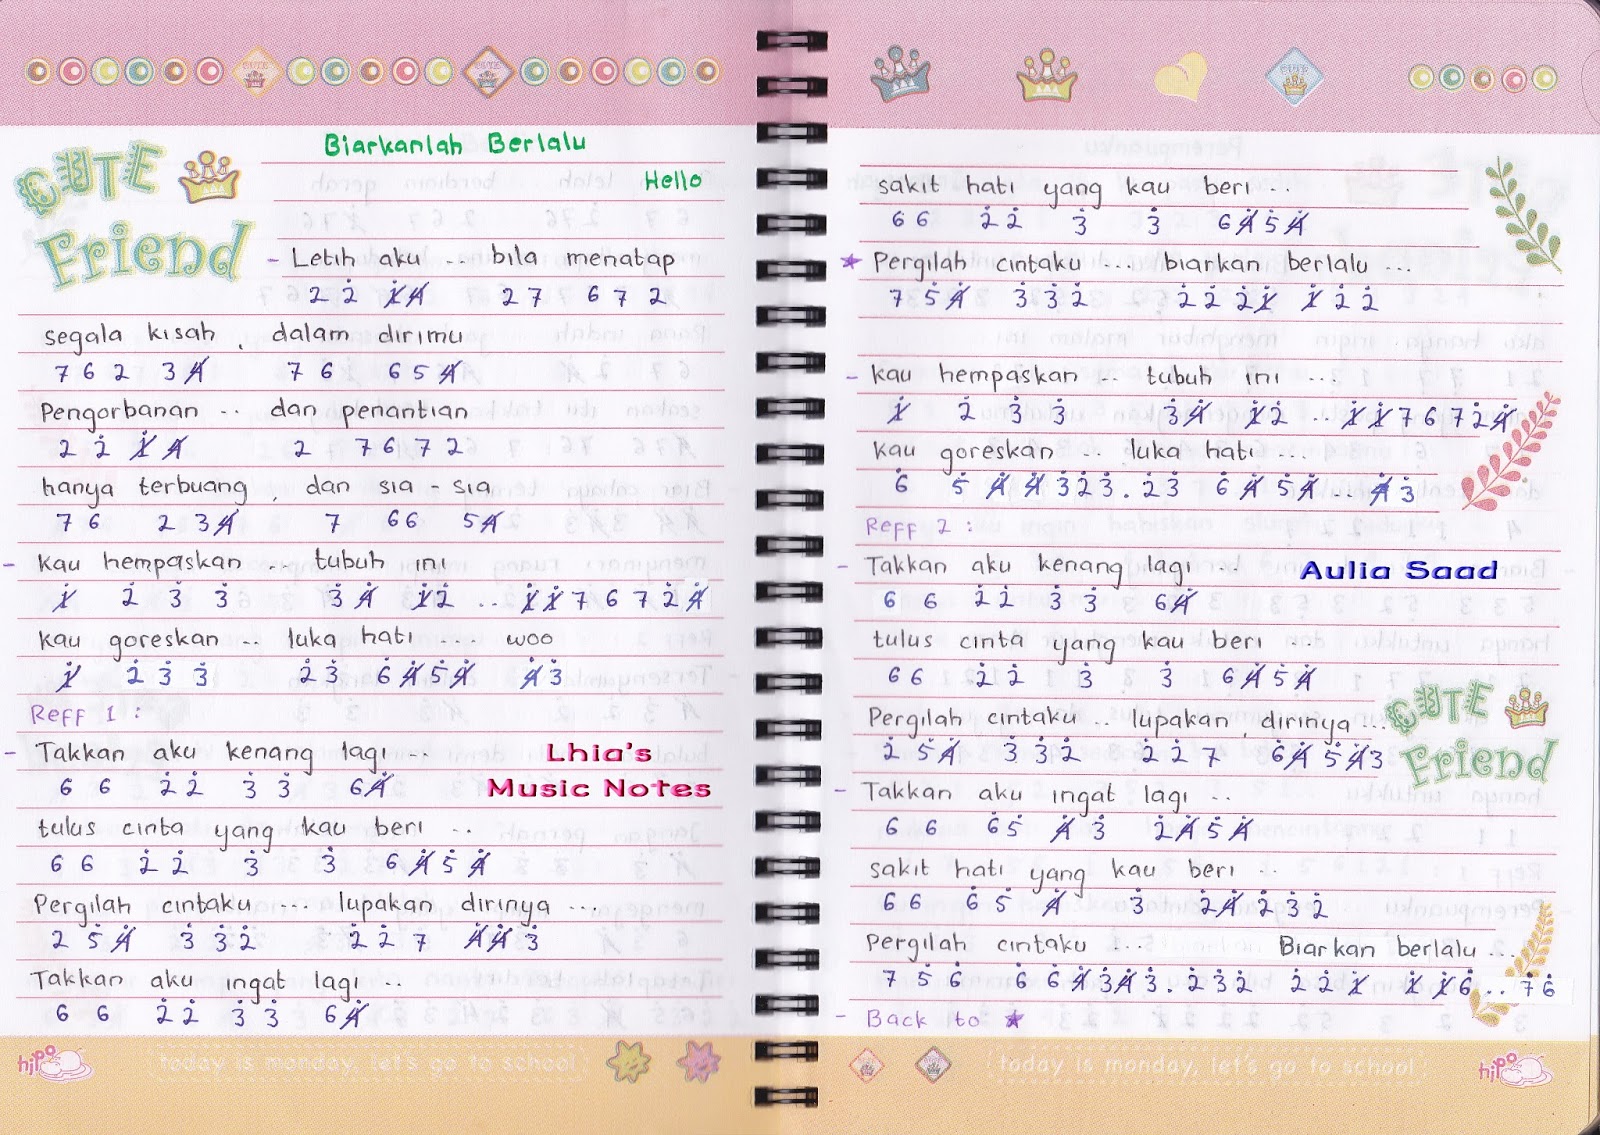 CUTE
Friend
Biarkanlah Berlalu
Hello
- Letih aku .. bila menatap
2 2 1 4 2 7 6 7 2
segala kisah , dalam dirimu
7 6 2 3 4 7 6 6 5 4
Pengorbanan .. dan penantian
2 2 1 4 2 7 6 7 2
hanya terbuang , dan sia - sia
7 6 2 3 4 7 6 6 5 4
- kau hempaskan .. tubuh ini
1 2 3 3 3 4 1 2 .. 1 1 7 6 7 2 4
kau goreskan .. luka hati .... woo
1 2 3 3 2 3 6 4 5 4 4 3
Reff 1 :
- Takkan aku kenang lagi ..
6 6 2 2 3 3 6 4
Lhia's
Music Notes
tulus cinta yang kau beri ..
6 6 2 2 3 3 6 4 5 4
Pergilah cintaku ... lupakan dirinya ...
2 5 4 3 3 2 2 2 7 4 4 3
Takkan aku ingat lagi ..
6 6 2 2 3 3 6 4
hipo
today is monday, let's go to school
sakit hati yang kau beri ...
6 6 2 2 3 3 6 4 5 4
★ Pergilah cintaku ... biarkan berlalu ...
7 5 4 3 3 2 2 2 2 1 1 2 2
- kau hempaskan .. tubuh ini ..
1 2 3 3 3 4 1 2 .. 1 1 7 6 7 2 4
kau goreskan .. luka hati ...
6 5 4 4 3 2 3 . 2 3 6 4 5 4 ... 4 3
Reff 2 :
- Takkan aku kenang lagi ..
Aulia Saad
6 6 2 2 3 3 6 4
tulus cinta yang kau beri ...
6 6 2 2 3 3 6 4 5 4
Pergilah cintaku .. lupakan dirinya ...
2 5 4 3 3 2 2 2 7 6 4 5 4 3
CUTE
Friend
- Takkan aku ingat lagi ..
6 6 6 5 4 3 2 4 5 4
sakit hati yang kau beri ..
6 6 6 5 4 3 2 4 2 3 2
Pergilah cintaku ... Biarkan berlalu ...
7 5 6 6 6 4 3 4 3 . 2 3 2 2 2 1 1 1 6 .. 7 6
- Back to ★
today is monday, let's go to school
hipo